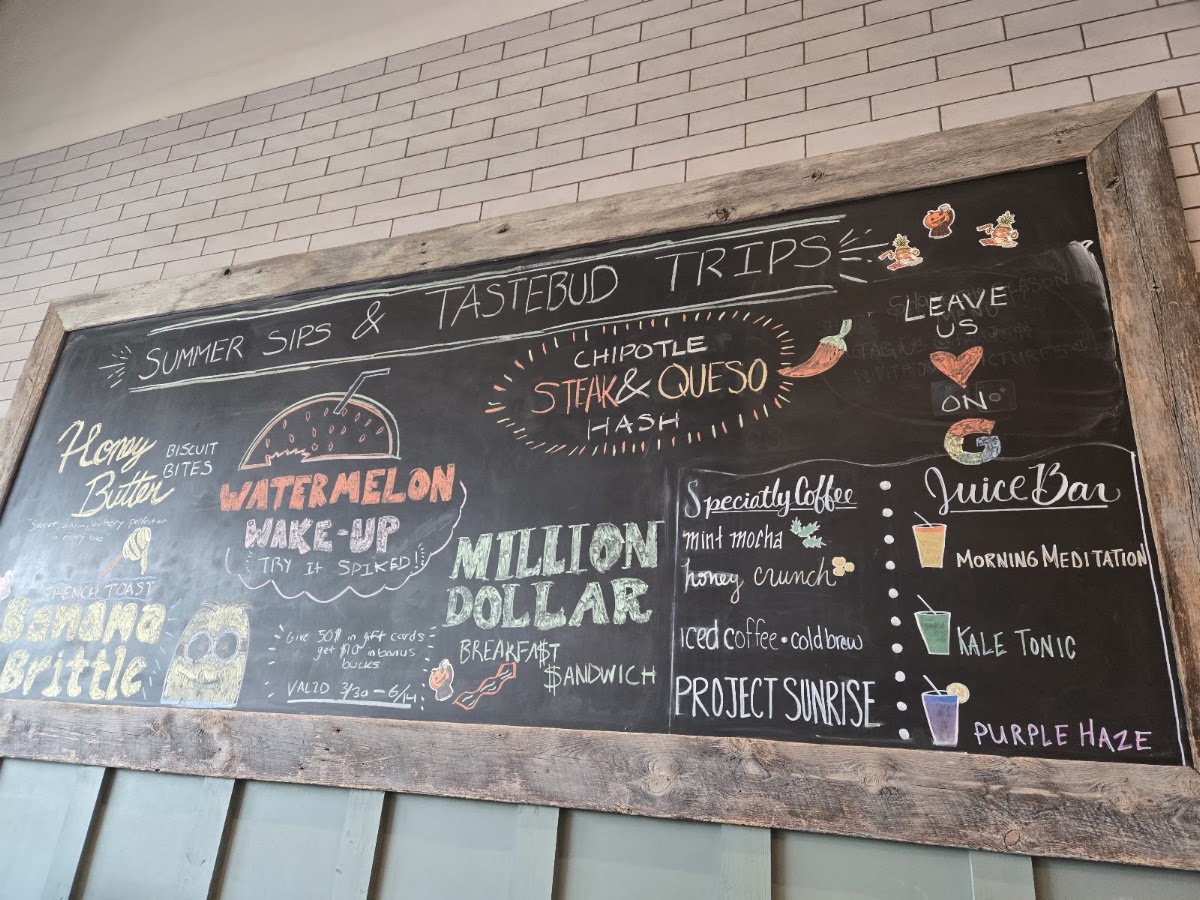 SUMMER SIPS & TASTEBUD TRIPS
Honey
Butter
BISCUIT
BITES
in every bite"
FRENCH TOAST
Banana
Brittle
WATERMELON
WAKE-UP
TRY it SPIKED!
Give 50$ in gift cards
get $10 in bonus
bucks
VALID 3/30 - 6/14
CHIPOTLE
STEAK & QUESO
HASH
MILLION
DOLLAR
BREAKFA$T
$ANDWICH
LEAVE
US
ON
G
Speciatly Coffee
mint mocha
honey crunch
iced coffee • cold brew
PROJECT SUNRISE
Juice Bar
MORNING MEDITATION
KALE TONIC
PURPLE HAZE